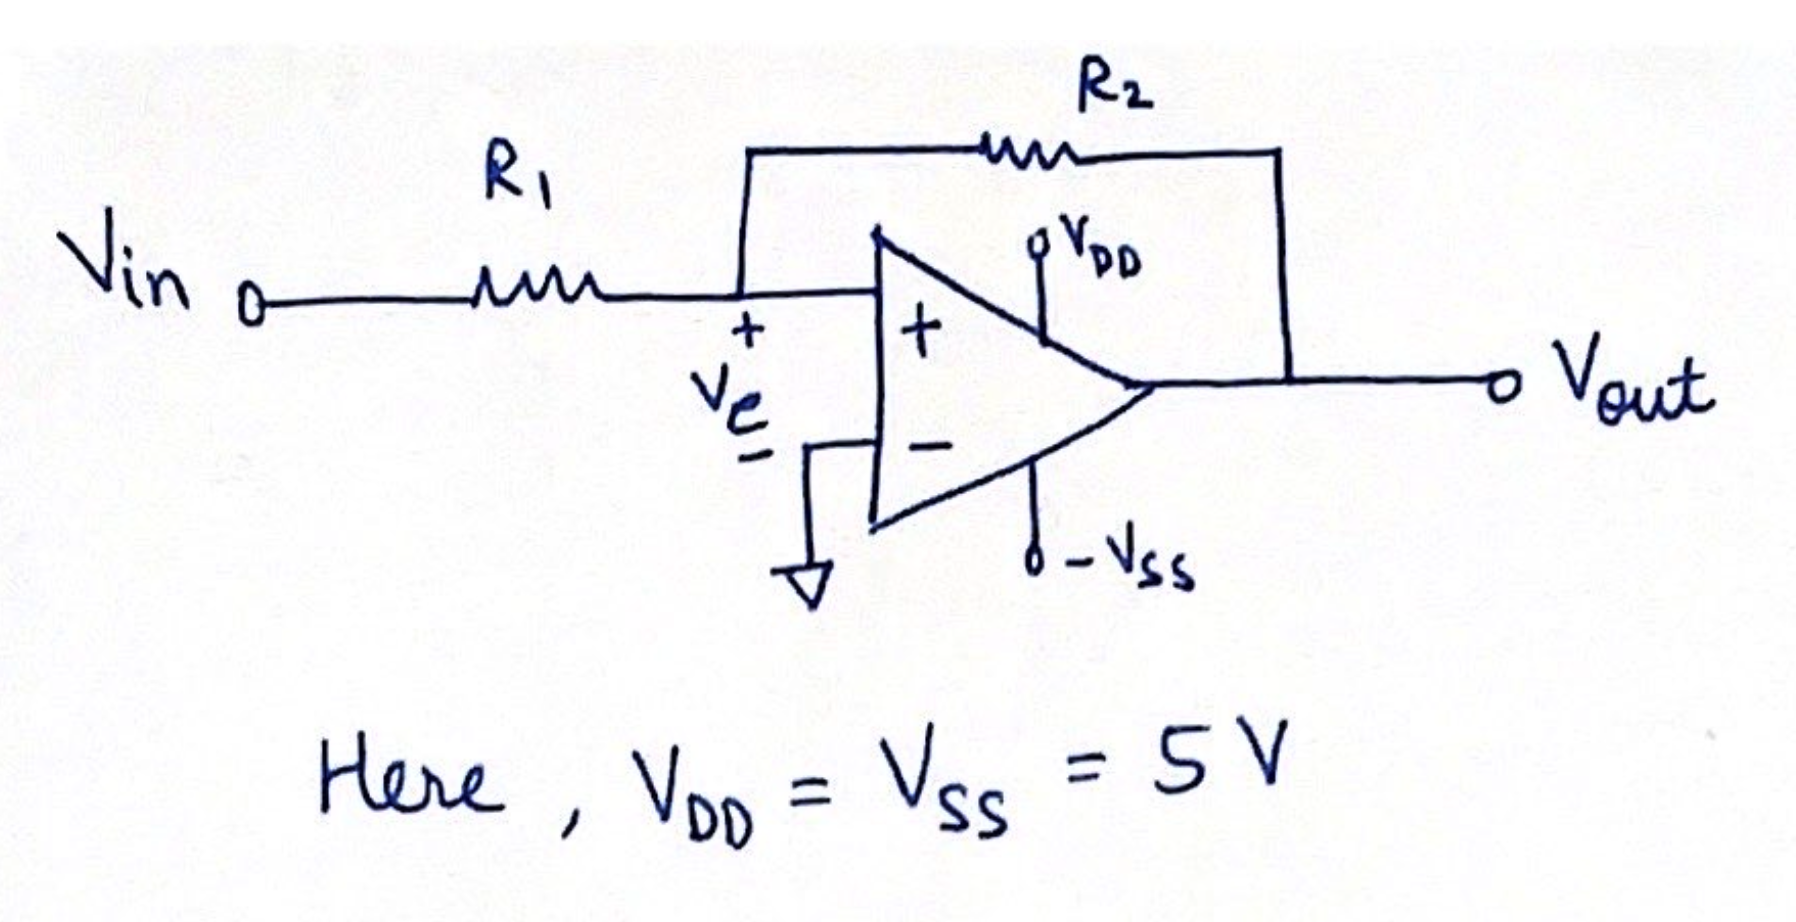 R₂
R₁
V_DD
Vin
+
+
V_e
−
−
Vout
−V_SS
Here , V_DD = V_SS = 5 V